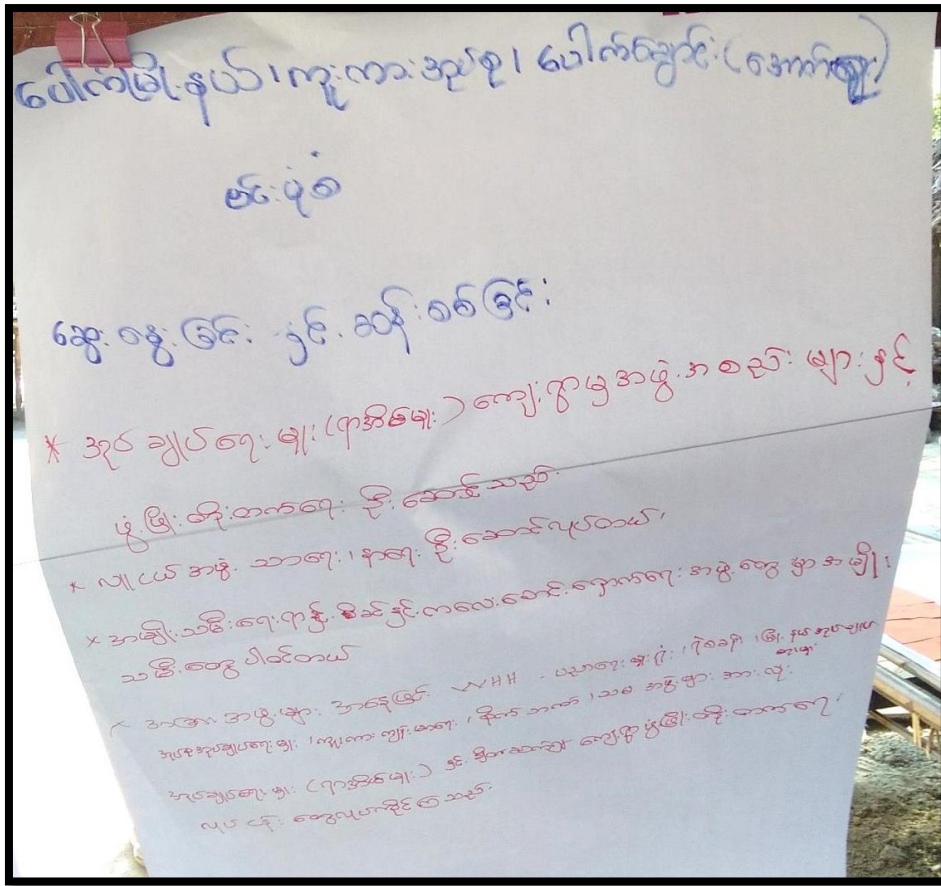 ပေါက်မြို့နယ်၊ ကူကားအုပ်စု၊ ပေါက်ချောင်း (အောက်ရွာ)
ဗင်းပုံစံ
ဆွေးနွေးခြင်း နှင့် ဆန်းစစ်ခြင်း
* အုပ်ချုပ်ရေးမှူး (ရာအိမ်မှူး) ကျေးရွာမှ အဖွဲ့အစည်းများနှင့်
ဖွံ့ဖြိုးတိုးတက်ရေး ဦးဆောင်သည်
* လူငယ်အဖွဲ့ သာရေး၊ နာရေး ဦးဆောင်လုပ်တယ်၊
× အမျိုးသမီးရေးရာနှင့် မိခင်နှင့်ကလေးစောင့်ရှောက်ရေး အဖွဲ့တွေမှာ အမျိုး
သမီးတွေ ပါဝင်တယ်
အခြားအဖွဲ့များ အနေဖြင့် WHH - ပညာရေးမှူးရုံး၊ ရဲစခန်း၊ မြို့နယ်အုပ်ချုပ်
အုပ်စုအုပ်ချုပ်ရေးမှူး၊ ကူကားကျန်းမာရေး၊ အဖွဲ့များအားလုံး
အုပ်ချုပ်ရေးမှူး (ရာအိမ်မှူး) နှင့် ကျေးရွာဖွံ့ဖြိုးတိုးတက်ရေး
လုပ်ငန်းတွေလုပ်ကိုင်ကြသည်